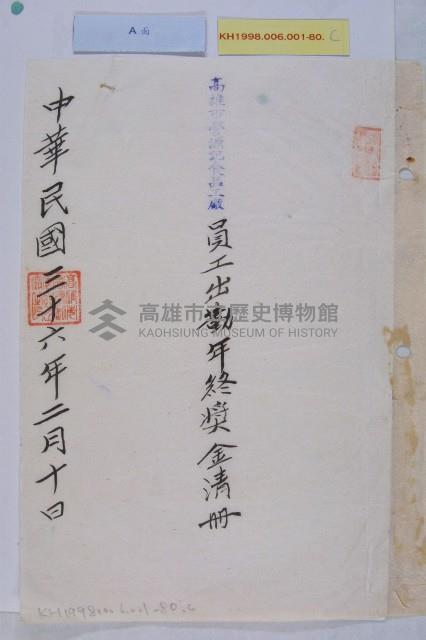 A面
KH1998.006.001-80. C
高雄市營源記食品工廠
員工出勤年終獎金清冊
中華民國三十六年二月十日
高雄市立歷史博物館
KAOHSIUNG MUSEUM OF HISTORY
KH1998.006.001-80.c